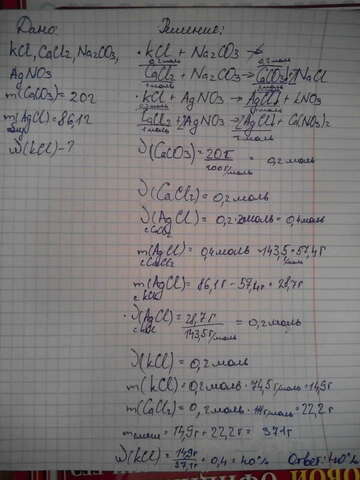 Дано:
KCl, CaCl₂, Na₂CO₃,
AgNO₃
m(CaCO₃)=20г
m(AgCl)=86,1г
ω(KCl)-?
Решение:
KCl + Na₂CO₃ ↛
0,2моль
CaCl₂ + Na₂CO₃ → CaCO₃ + 2NaCl
1моль 1моль
0,2моль
KCl + AgNO₃ → AgCl↓ + KNO₃
CaCl₂ + 2AgNO₃ → 2AgCl + Ca(NO₃)₂
1моль 2моль
ν(CaCO₃) = 20г / 100г/моль = 0,2моль
ν(CaCl₂) = 0,2моль
ν(AgCl) = 0,2·2моль = 0,4моль
с CaCl₂
m(AgCl) = 0,4моль · 143,5г/моль = 57,4г
с CaCl₂
m(AgCl) = 86,1г - 57,4г = 28,7г
с KCl
ν(AgCl) = 28,7г / 143,5г/моль = 0,2моль
с KCl
ν(KCl) = 0,2моль
m(KCl) = 0,2моль · 74,5г/моль = 14,9г
m(CaCl₂) = 0,2моль · 111г/моль = 22,2г
mсмеси = 14,9г + 22,2г = 37,1г
ω(KCl) = 14,9г / 37,1г = 0,4 = 40% Ответ: 40%